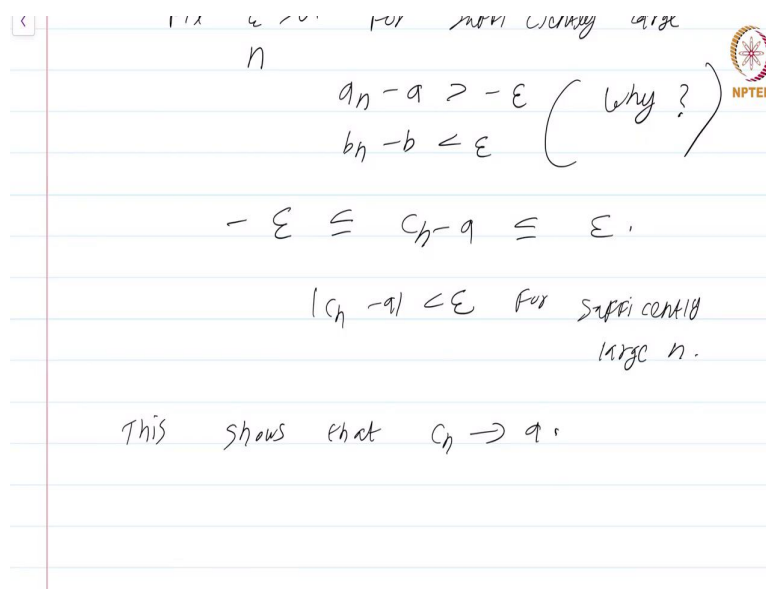 Fix ε > 0. For sufficiently large
n
aₙ - a > - ε (Why?)
bₙ - b < ε
NPTEL
- ε ≤ cₙ - a ≤ ε.
|cₙ - a| < ε for sufficently
large n.
This shows that cₙ → a.